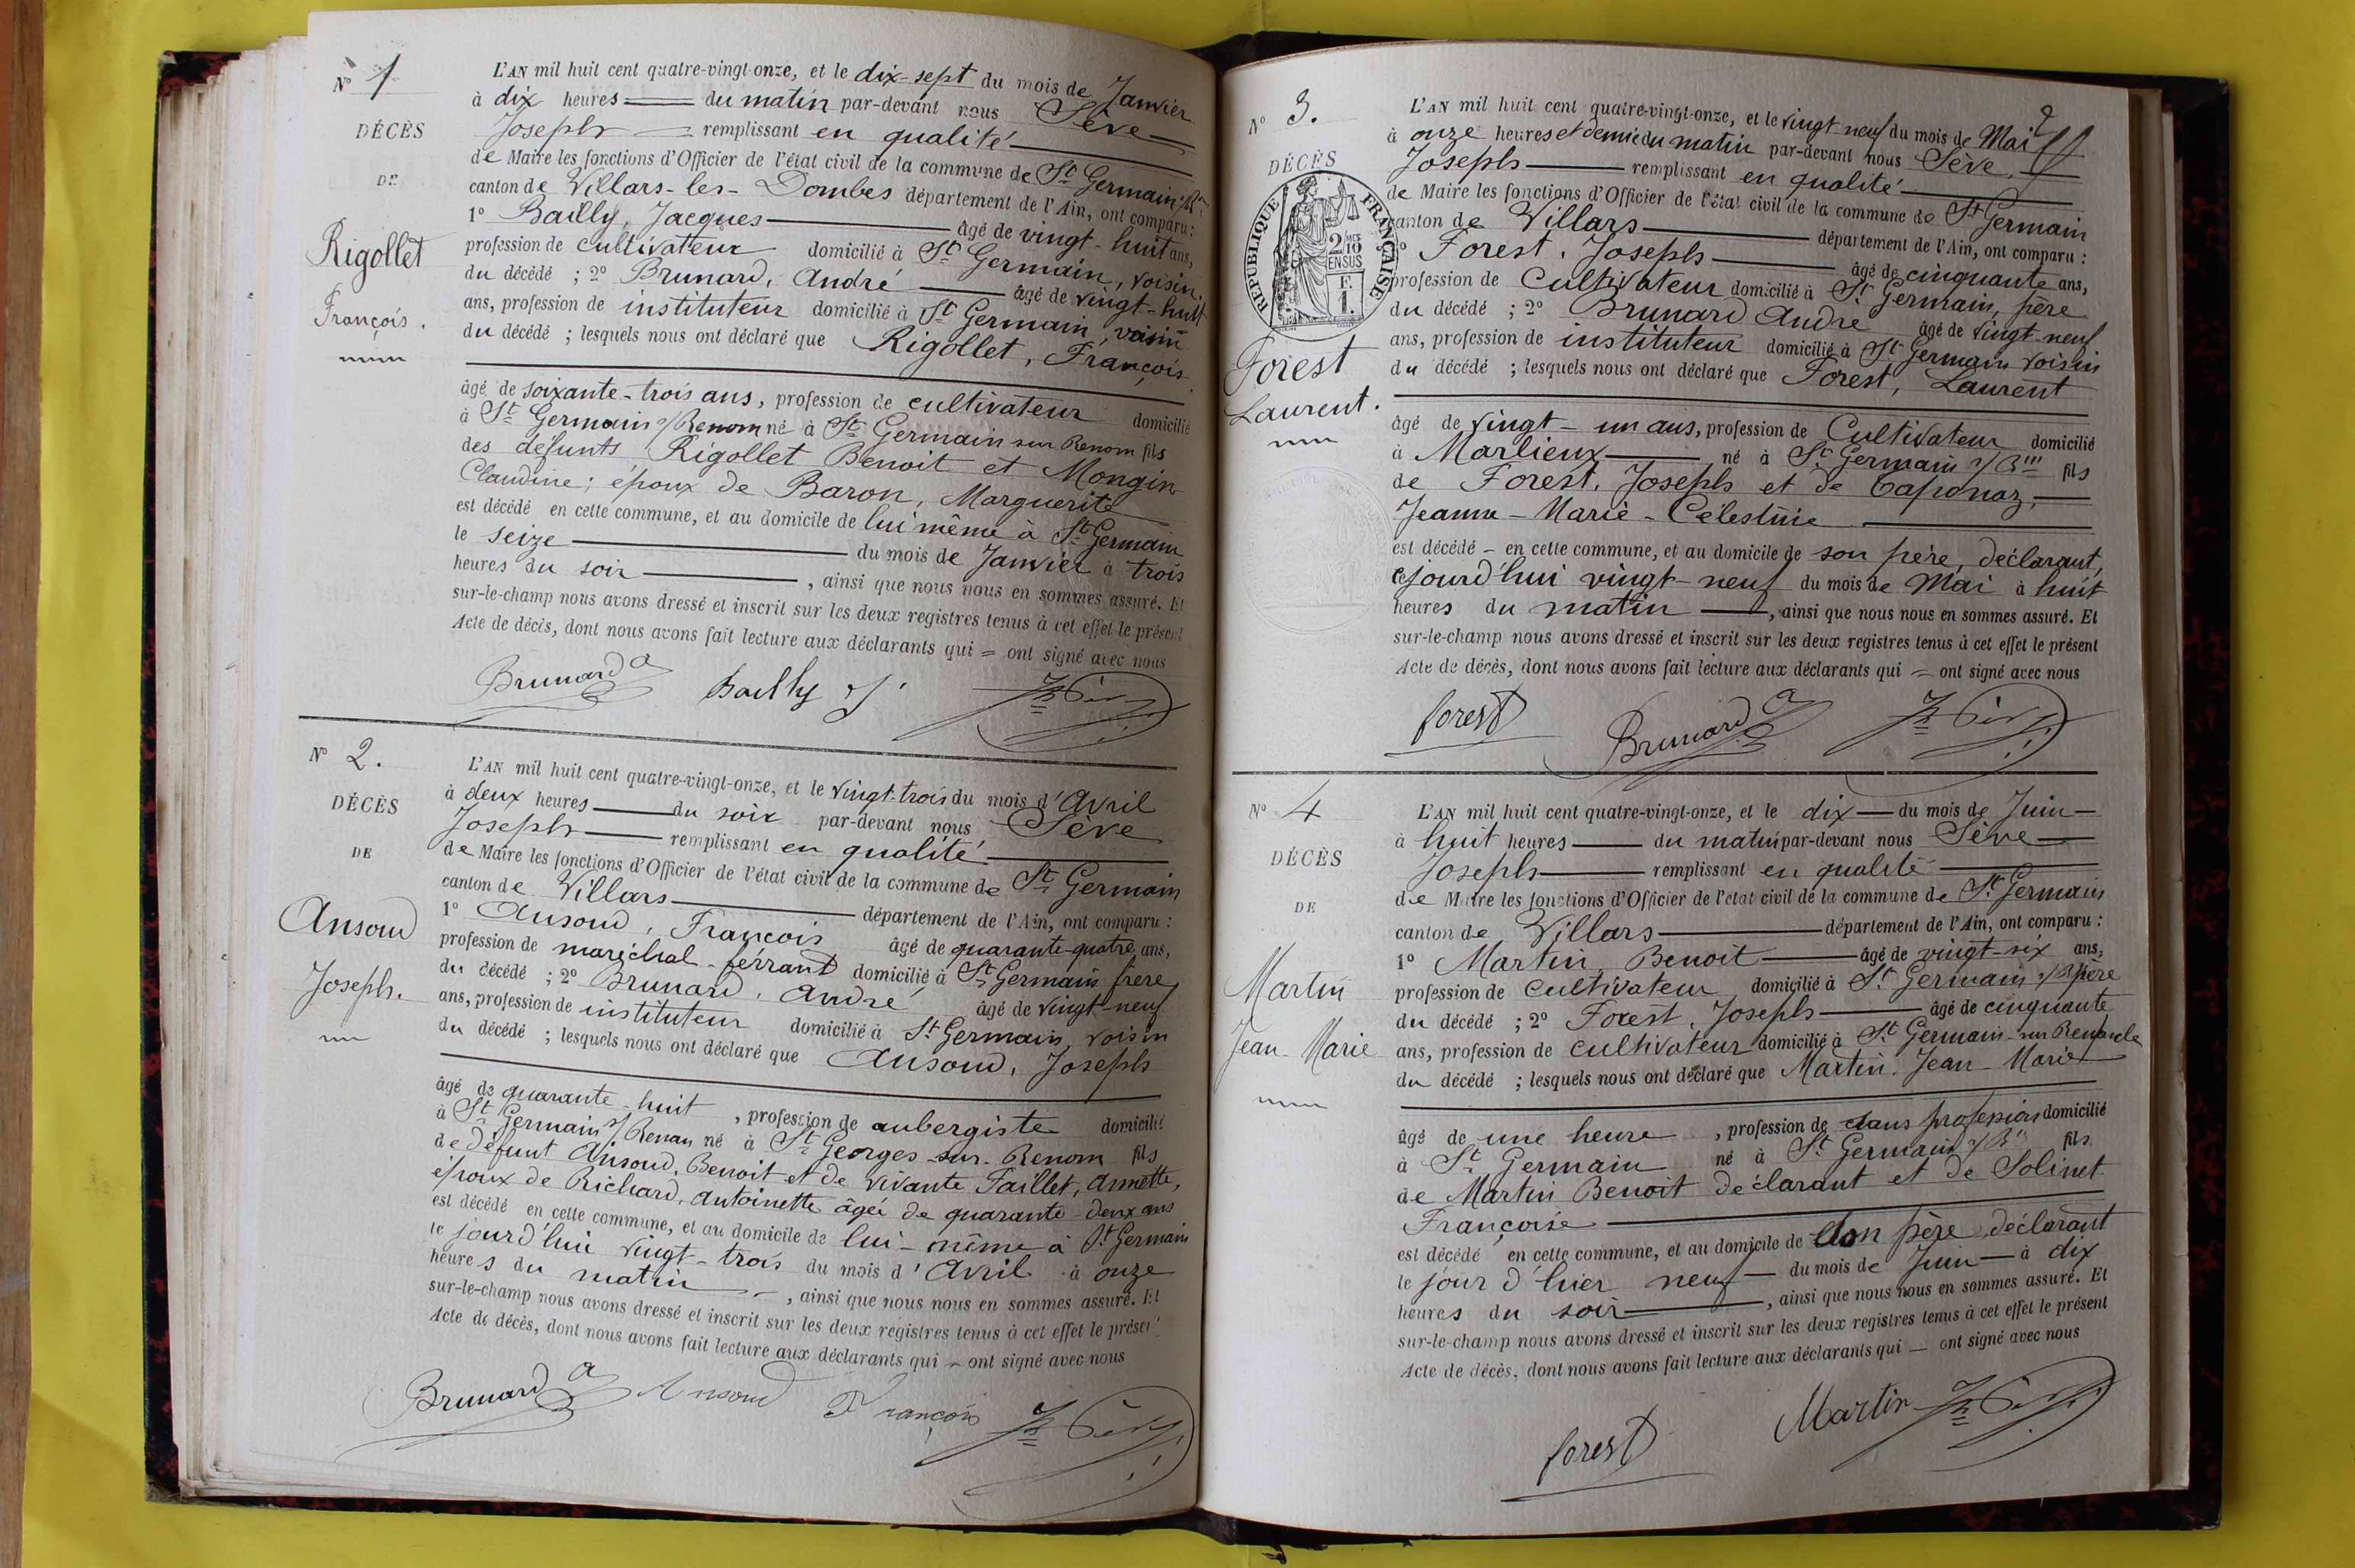 N° 1
DÉCÈS
DE
Rigollet
François.
L'AN mil huit cent quatre-vingt-onze, et le dix-sept du mois de Janvier
à dix heures du matin par-devant nous Sève
Joseph remplissant en qualité
de Maire les fonctions d'Officier de l'état civil de la commune de St Germain s/R
canton de Villars-les-Dombes département de l'Ain, ont comparu :
1° Bailly, Jacques âgé de vingt-huit ans,
profession de cultivateur domicilié à St Germain, voisin.
du décédé ; 2° Brunard, André âgé de vingt-huit
ans, profession de instituteur domicilié à St Germain, voisin
du décédé ; lesquels nous ont déclaré que Rigollet, François
âgé de soixante-trois ans, profession de cultivateur domicilié
à St Germain s/Renom né à St Germain sur Renom fils
des défunts Rigollet Benoit et Mongin
Claudine; époux de Baron, Marguerite
est décédé en cette commune, et au domicile de lui même à St Germain
le seize du mois de Janvier à trois
heures du soir, ainsi que nous nous en sommes assuré. Et
sur-le-champ nous avons dressé et inscrit sur les deux registres tenus à cet effet le présent
Acte de décès, dont nous avons fait lecture aux déclarants qui = ont signé avec nous
Brunard a Bailly J Jh Sève
N° 2.
DÉCÈS
DE
Ansoud
Joseph.
L'AN mil huit cent quatre-vingt-onze, et le vingt-trois du mois d'Avril
à deux heures du soir par-devant nous Sève
Joseph remplissant en qualité
de Maire les fonctions d'Officier de l'état civil de la commune de St Germain
canton de Villars département de l'Ain, ont comparu :
1° Ansoud, François âgé de quarante-quatre ans,
profession de maréchal-férrant domicilié à St Germain frère
du décédé ; 2° Brunard, André âgé de vingt-neuf
ans, profession de instituteur domicilié à St Germain, voisin
du décédé ; lesquels nous ont déclaré que Ansoud, Joseph
âgé de quarante-huit, profession de aubergiste domicilié
à St Germain s/Renan né à St Georges-sur-Renom fils
de défunt Ansoud, Benoit et de vivante Faillet, Annette,
époux de Richard, Antoinette âgée de quarante-deux ans
est décédé en cette commune, et au domicile de lui-même à St Germain
le jourd'hui vingt-trois du mois d'Avril à onze
heures du matin, ainsi que nous nous en sommes assuré. Et
sur-le-champ nous avons dressé et inscrit sur les deux registres tenus à cet effet le présen
Acte de décès, dont nous avons fait lecture aux déclarants qui – ont signé avec nous
Brunard a Ansoud François Jh Sève
2
N° 3.
DÉCÈS
RÉPUBLIQUE FRANÇAISE
2/10 EN SUS
F. 1.
Forest
Laurent.
L'AN mil huit cent quatre-vingt-onze, et le vingt neuf du mois de Mai
à onze heures et demie du matin par-devant nous Sève,
Joseph remplissant en qualité
de Maire les fonctions d'Officier de l'état civil de la commune de St Germain
canton de Villars département de l'Ain, ont comparu :
1° Forest, Joseph âgé de cinquante ans,
profession de Cultivateur domicilié à St Germain, père
du décédé ; 2° Brunard André âgé de vingt-neuf
ans, profession de instituteur domicilié à St Germain voisin
du décédé ; lesquels nous ont déclaré que Forest, Laurent
âgé de vingt-un ans, profession de Cultivateur domicilié
à Marlieux né à St Germain s/Rm fils
de Forest, Joseph et de Caponaz,
Jeanne-Marie-Celestine
est décédé – en cette commune, et au domicile de son père, déclarant,
cejourd'hui vingt-neuf du mois de Mai à huit
heures du matin, ainsi que nous nous en sommes assuré. Et
sur-le-champ nous avons dressé et inscrit sur les deux registres tenus à cet effet le présent
Acte de décès, dont nous avons fait lecture aux déclarants qui = ont signé avec nous
forest Brunard a Jh Sève
N° 4
DÉCÈS
DE
Martin
Jean-Marie
L'AN mil huit cent quatre-vingt-onze, et le dix du mois de Juin
à huit heures du matin par-devant nous Sève
Joseph remplissant en qualité
de Maire les fonctions d'Officier de l'état civil de la commune de St Germain
canton de Villars département de l'Ain, ont comparu :
1° Martin Benoit âgé de vingt-six ans,
profession de Cultivateur domicilié à St Germain s/R père
du décédé ; 2° Forest, Joseph âgé de cinquante
ans, profession de cultivateur domicilié à St Germain-sur-Renom
du décédé ; lesquels nous ont déclaré que Martin, Jean-Marie
âgé de une heure, profession de sans profession domicilié
à St Germain né à St Germain s/R fils
de Martin Benoit déclarant et de Solinet
Françoise
est décédé en cette commune, et au domicile de son père déclarant
le jour d'hier neuf du mois de Juin à dix
heures du soir, ainsi que nous nous en sommes assuré. Et
sur-le-champ nous avons dressé et inscrit sur les deux registres tenus à cet effet le présent
Acte de décès, dont nous avons fait lecture aux déclarants qui — ont signé avec nous
forest Martin Jh Sève